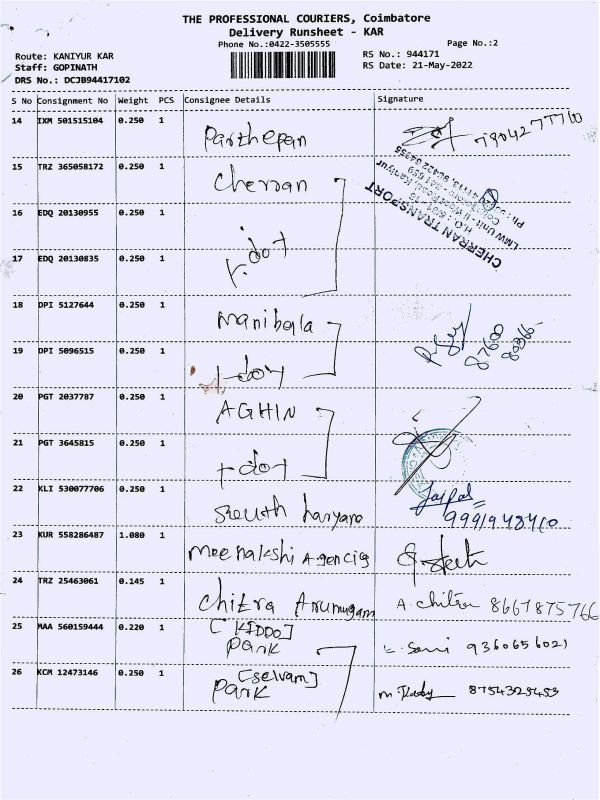 THE PROFESSIONAL COURIERS, Coimbatore
Delivery Runsheet - KAR
Phone No.:0422-3505555 Page No.:2
Route: KANIYUR KAR RS No.: 944171
Staff: GOPINATH RS Date: 21-May-2022
DRS No.: DCJB94417102
S No Consignment No Weight PCS Consignee Details Signature
14 IXM 501515104 0.250 1 Parthepan
15 TRZ 365058172 0.250 1 Cherran
CHERRAN TRANSPORT
16 EDQ 20130955 0.250 1
17 EDQ 20130835 0.250 1
18 DPI 5127644 0.250 1 Manibala
19 DPI 5096515 0.250 1
20 PGT 2037787 0.250 1 AGHIN
21 PGT 3645815 0.250 1
22 KLI 530077706 0.250 1 South haryana Jaipal
9991948460
23 KUR 558286487 1.080 1 Meenakshi Agencies
24 TRZ 25463061 0.145 1 Chitra Arumugam A. Chitra 8667875766
25 MAA 560159444 0.220 1 [KIDDO]
Park 9360656021
26 KCM 12473146 0.250 1 [Selvam]
Park 8754325453